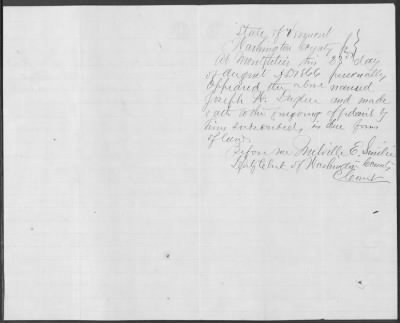 State of Vermont
Washington County } ss
At Montpelier this 22nd day
of August AD 1866 personally
appeared the above named
Joseph A. and made
oath to the foregoing affidavit by
him subscribed, in due form
of law.
Before me Melville E. Smilie
Dpty Clerk of Washington County
Court